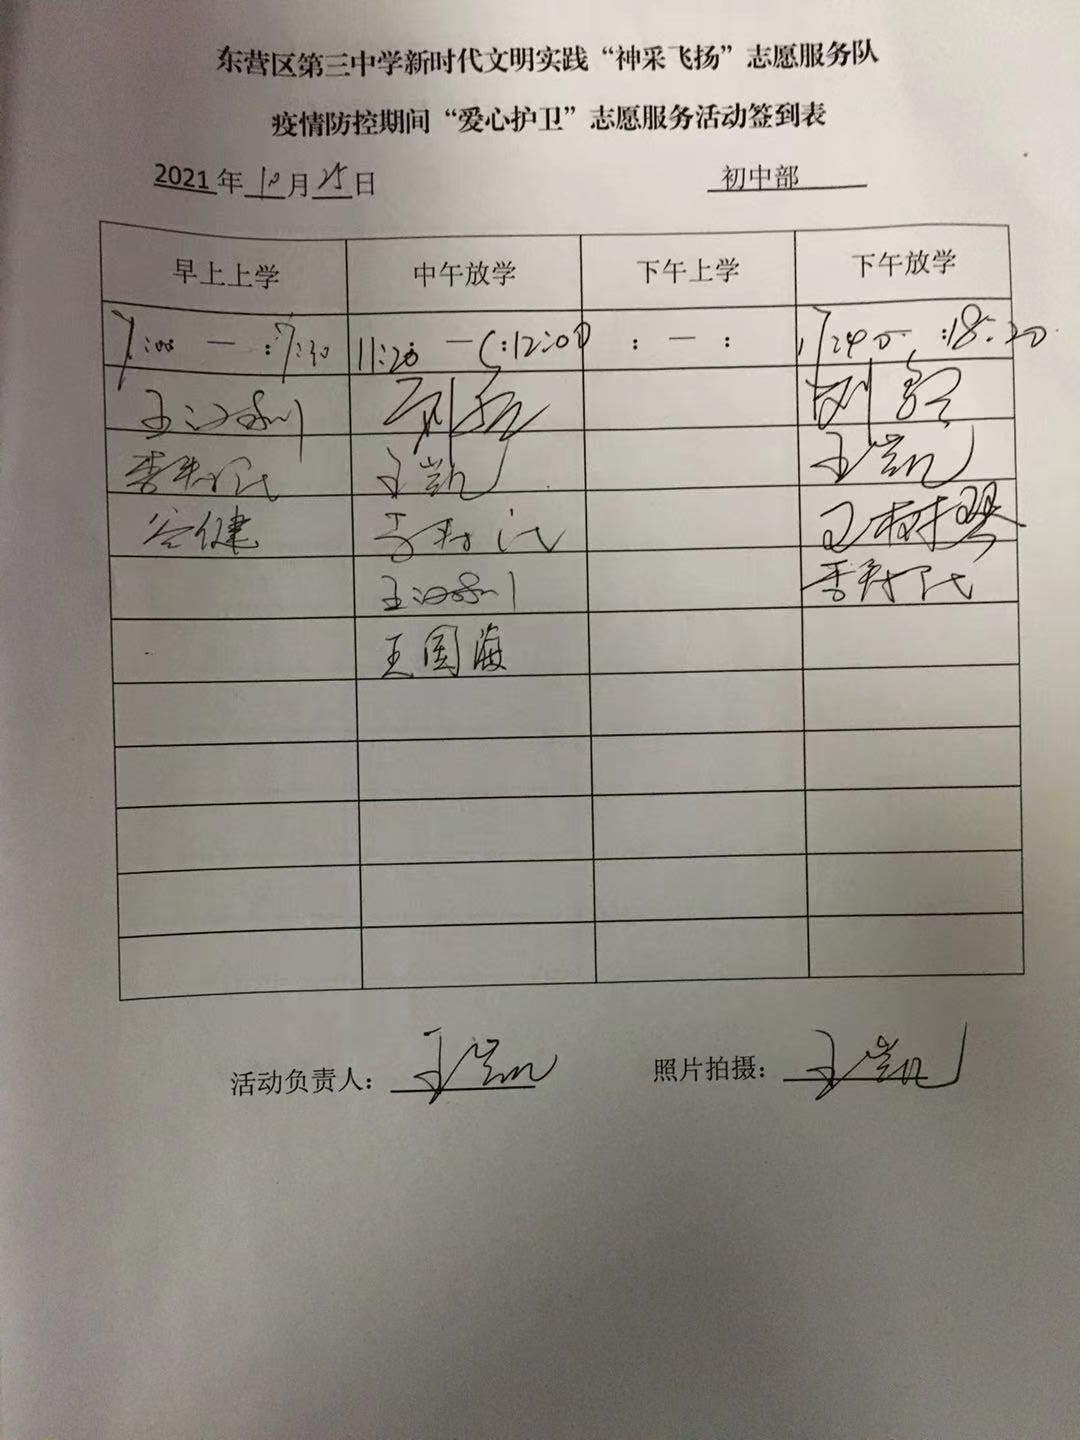 东营区第三中学新时代文明实践“神采飞扬”志愿服务队
疫情防控期间“爱心护卫”志愿服务活动签到表
2021年10月25日 初中部
早上上学 中午放学 下午上学 下午放学
7:00 — :7:30 11:20 — :12:00 : — : 17:40 :18:20
王汉利 刘
李寿代 王凯 王凯
谷健 李寿代 王树琴
王汉利 李寿代
王国海
活动负责人：王凯 照片拍摄：王凯